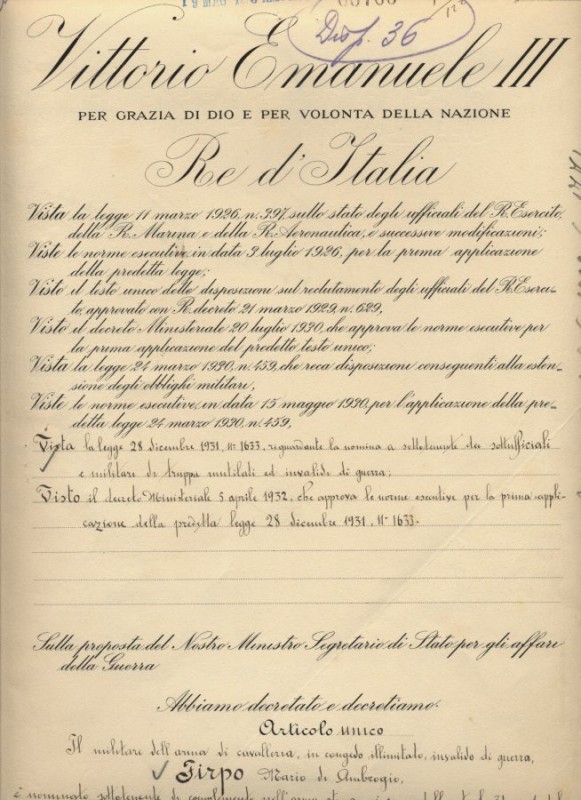 Disp. 36
Vittorio Emanuele III
PER GRAZIA DI DIO E PER VOLONTA DELLA NAZIONE
Re d'Italia
Vista la legge 11 marzo 1926, n. 397, sullo stato degli ufficiali del R. Esercito,
della R. Marina e della R. Aeronautica, e successive modificazioni;
Viste le norme esecutive in data 9 luglio 1926, per la prima applicazione
della predetta legge;
Visto il testo unico delle disposizioni sul reclutamento degli ufficiali del R. Eserci-
to, approvato con R. decreto 21 marzo 1929, n. 629,
Visto il decreto Ministeriale 20 luglio 1930, che approva le norme esecutive per
la prima applicazione del predetto testo unico;
Vista la legge 24 marzo 1930, n. 459, che reca disposizioni conseguenti alla esten-
sione degli obblighi militari,
Viste le norme esecutive, in data 15 maggio 1930, per l'applicazione della pre-
detta legge 24 marzo 1930, n. 459,
Vista la legge 28 dicembre 1931, n° 1633, riguardante la nomina a sottotenente dei sottufficiali
e militari di truppa mutilati ed invalidi di guerra;
Visto il decreto Ministeriale 5 aprile 1932, che approva le norme esecutive per la prima appli-
cazione della predetta legge 28 dicembre 1931, n° 1633-
Sulla proposta del Nostro Ministro Segretario di Stato per gli affari
della Guerra
Abbiamo decretato e decretiamo:
Articolo unico
Il militare dell'arma di cavalleria, in congedo illimitato, invalido di guerra,
Tirpo Mario di Ambrogio,
è nominato sottotenente di complemento nell'arma